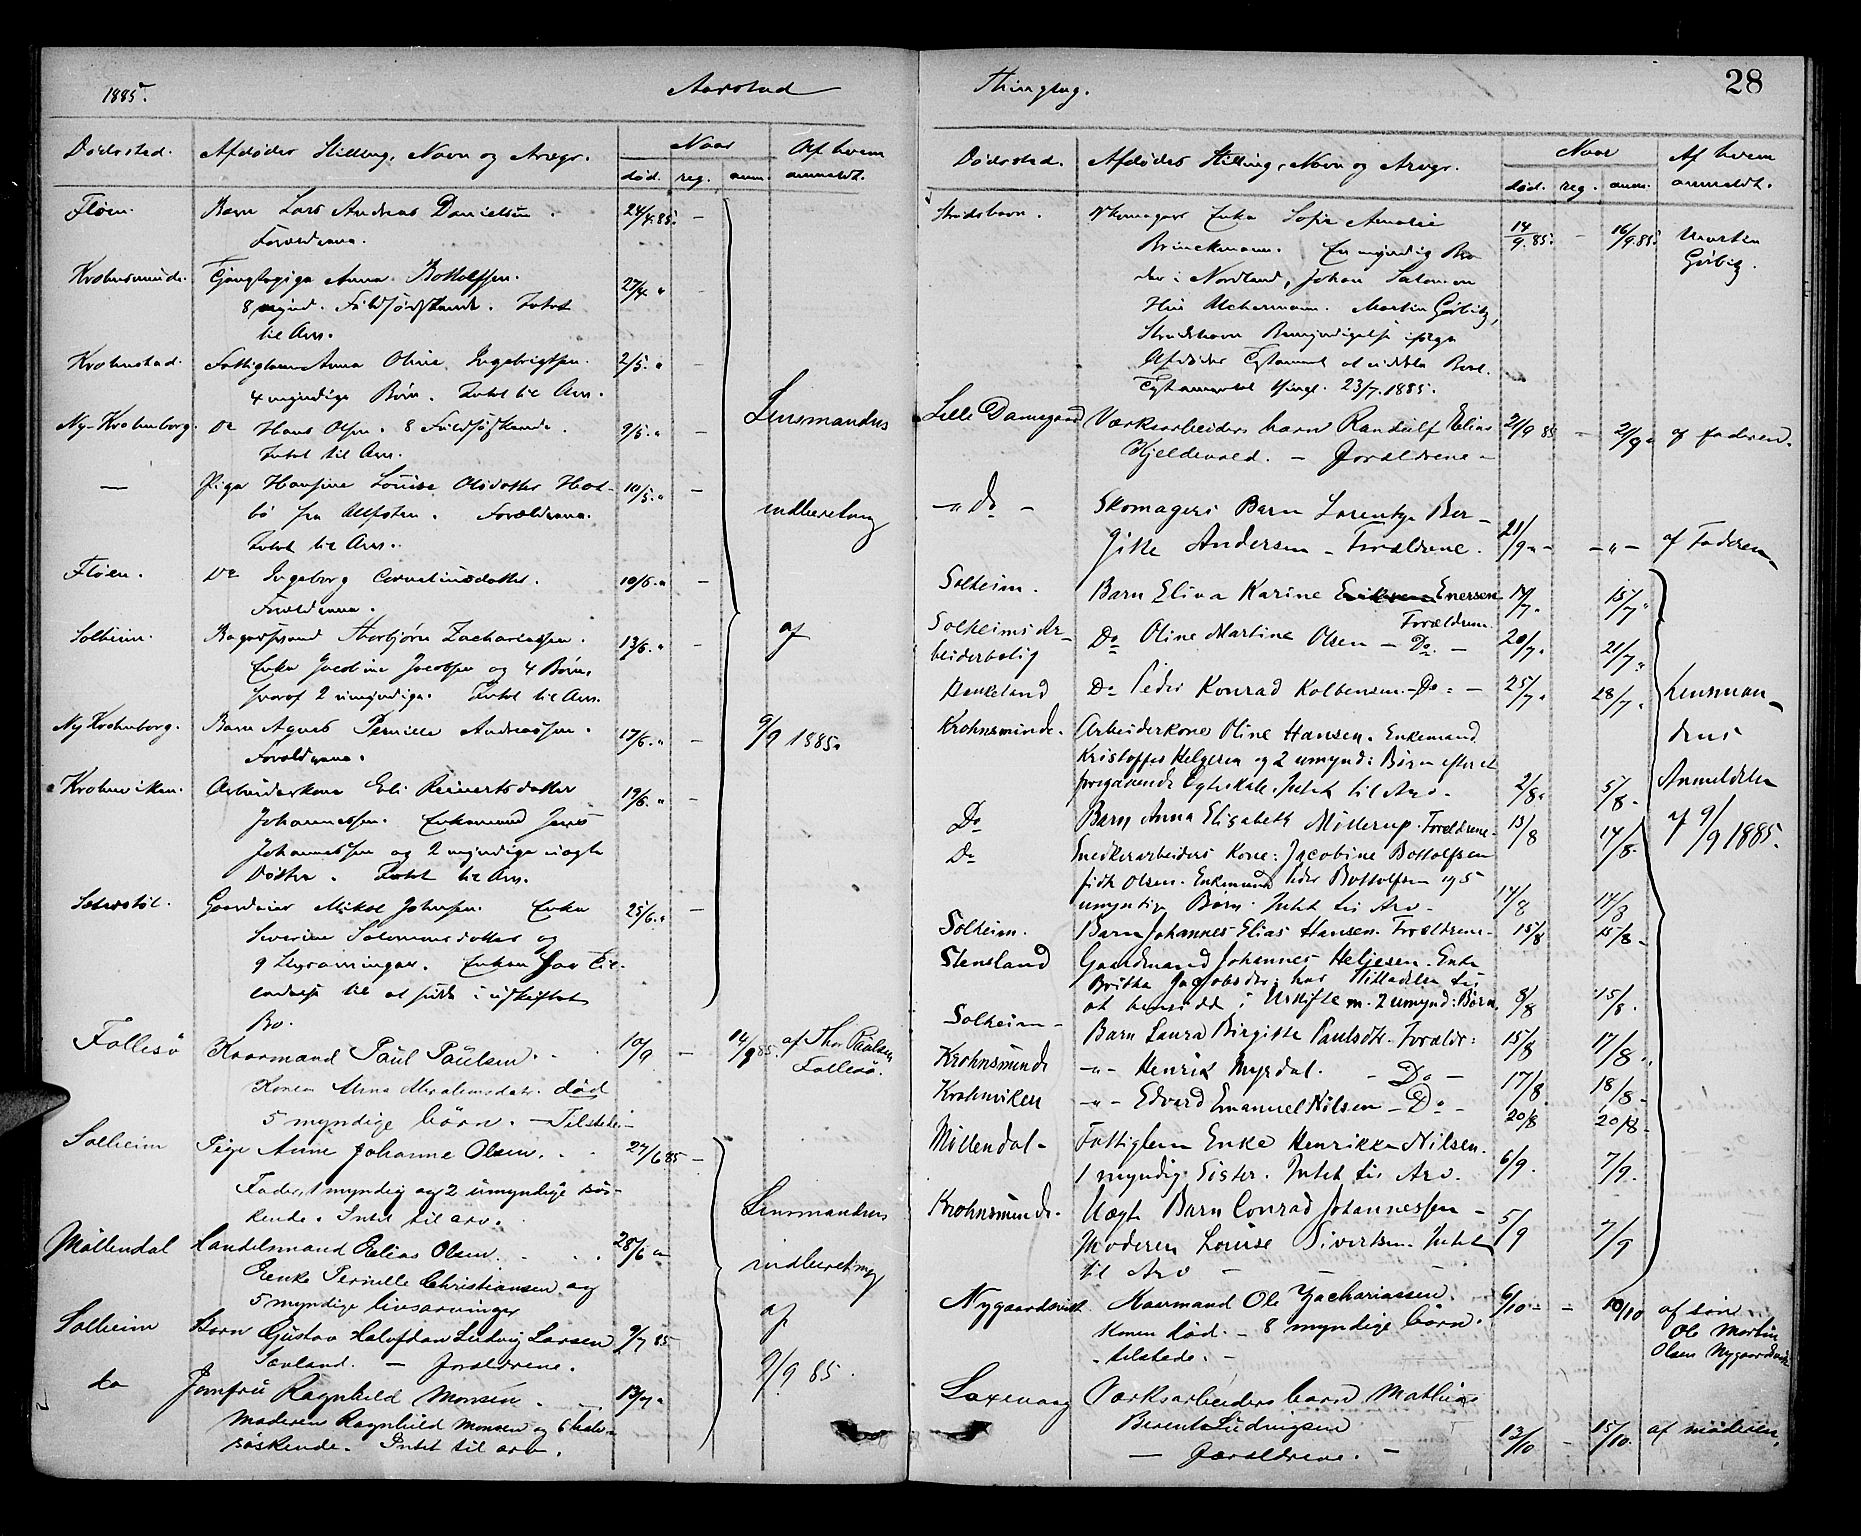 1885. Aarstad
Dødssted. Afdødes Stilling, Navn og Arvgr. Naar Af hvem
død. reg. anm. anmeldt.
Fløen. Barn Lars Andreas Danielsen. 24/4.85. —
Forældrene.
Krohnsminde. Tjenestepige Anna Bottolfsen. 27/4. " —
8 mynd. Fuldsødskende. Intet
til Arv.
Krohnstad. Fattiglem Anna Oline Ingebrigtsen. 2/5. " —
4 myndige Børn. Intet til Arv.
Ny-Krohnborg. Do Hans Olsen. 8 Fuldsødskende. 9/5. " — Lensmandens
Intet til Arv.
— Pige Hansine Louise Olsdatter Hol- 10/5. " — indberetning
bø fra Alfsten. Forældrene.
Intet til Arv.
Fløen. Do Ingeborg Corneliusdatter. 10/6. " —
Forældrene.
Solheim. Bagersvend Thorbjørn Zachariassen. 13/6. " — af
Enke Jacobine Jacobsen og 4 Børn,
hvoraf 2 umyndige. Intet til Arv.
Ny Krohnborg. Barn Agnes Pernille Andreassen. 17/6. " — 9/9 1885.
Forældrene.
Krohnviken. Arbeiderkone Eli Reinertsdatter 19/6. " —
Johannessen. Enkemand Jens
Johannessen og 2 myndige uægte
Døttre. Intet til Arv.
Sæterstøl. Gaardeier Mikal Johnsen. Enke 25/6. " —
Severine Salomonsdatter og
9 Livsarvinger. Enken har Til-
ladelse til at sidde i uskiftet
Bo.
Follesø Kaarmand Paul Paulsen. 10/9 — 14/9 85. af Thor Paulsen
Follesø.
Konen Anna Abrahamsdatr. død
5 myndige børn. — Tilstede —
Solheim Pige Anne Johanne Olsen. 27/6 85 —
Fader, 1 myndig og 2 umyndige søs-
kende. Intet til arv. Lensmandens
Møllendal Handelsmand Elias Olsen. 28/6 "
Enke Pernille Christiansen og indberetning
5 myndige livsarvinger af
Solheim Barn Gustav Halvfdan Ludvig Larsen 9/7 85
Sævland. — forældrene. 9/9 85.
do Jomfru Ragnhild Monsen. 13/7 "
Moderen Ragnhild Monsen og 6 halv-
søskende. Intet til arv.
Thinglag. 28
Dødssted. Afdødes Stilling, Navn og Arvgr. Naar Af hvem
død. reg. anm. anmeldt.
Strudshavn. Enke Sofie Amalie 14/9.85. — 16/9.85. Martin
Brinckmann. En myndig Bro- Görbitz.
der i Nordland, Johan Salomon
Martin Görbitz,
Strudshavn Bemyndigelse ifølge
Afdødes Testament at uddele Boet.
Testamentet thingl. 23/7.1885.
Lille Damsgaard Værksarbeiders barn Randulf Elias 21/9 85 — 21/9 " af faderen.
Kjeldevold. — Forældrene —
— " Do — Skomagers Barn Lorentze Ber-
gitte Andersen — Forældrene. 21/9 " — — " — af Faderen
Solheim. Barn Elina Karine Enersen 14/7. 15/7 "
Forældrene
Solheims Ar- Do Oline Martine Olsen — Do. — 20/7. 21/7 "
beiderbolig
Birkeland Do Peder Konrad Kolbensen — Do: — 25/7. 28/7. Lensman-
Krohnsminde. Arbeiderkone Oline Hansen. Enkemand dens
Kristoffer Helgesen og 2 umynd: Børn efter et
foregaaende Egteskab. Intet til Arv. 2/8. 5/8. Anmeldelse
Do Barn Anna Elisabeth Mitterup. Forældrene. 13/8 14/8. af 9/9 1885.
Do Snedkerarbeiders Kone: Jacobine Bottolfsen
født Olsen. Enkemand Peder Bottolfsen og 5
umyndige Børn. Intet til Arv. 14/8 17/8
Solheim. Barn Johannes Elias Hansen. Forældrene. 15/8 15/8 —
Stensland Gaardmand Johannes Heljesen. Enke
Britha Jacobsdr; har Tilladelse til
at hensidde i Uskifte m. 2 umynd: Børn. 8/8 15/8.
Solheim — Barn Laura Birgitte Paulsdtr. Forældr: 15/8 17/8 "
Krohnsminde — " — Henrik Myrdal. — Do — 17/8 18/8 —
Krohnviken — " — Edvard Emanuel Nilsen — Do — 20/8 20/8 —
Møllendal — Fattiglem Enke Henrikke Nilsen.
1 myndig Sister. Intet til Arv. 6/9. 7/9.
Krohnsminde. Uægte Barn Conrad Johannessen — 5/9 7/9
Moderen Louise Sivertsen. Intet
til Arv —
Nygaardsvik Kaarmand Ole Zachariassen. 6/10 — — 10/10 af søn
Konen død. — 8 myndige børn. Ole Martin
— tilstede. — Olsen Nygaardsvik
Laxevaag Værksarbeiders barn Mathias
Berent Ludvigsen 13/10 — 15/10. af moderen.
— Forældrene. —